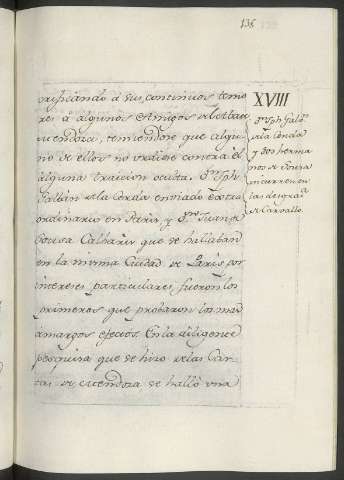 136
XVIII
Dn. Jph Galbn.
de la Cerda
y dos herma
nos de Sousa
incurren en
las desgraa.
de Carvallo.
crificando á sus continuos temo
res á algunos Amigos de
Mendoza, temiendose que algu
no de ellos no urdiese contra él
alguna traicion oculta. Dn. Jph
Galban de la Cerda enviado extra
ordinario en Paris y Dn. Juan de
Sousa Calhariz que se hallaban
en la misma Ciudad de Paris por
intereses particulares, fueron los
primeros que probaron los mas
amargos efectos. En la diligente
pesquisa que se hizo de las Car
tas de Mendoza se halló una